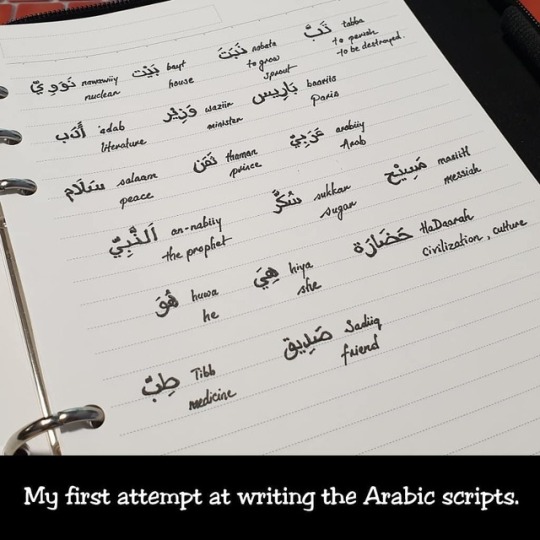 نَوَوِيّ nawawiiy
nuclear
بَيْت bayt
house
نَبَتَ nabata
to grow
sprout
تَبَّ tabba
to perish
-to be destroyed.
أَدَب 'adab
literature
وَزِيْر waziir
minister
بَارِيس baariis
Paris
سَلَام salaam
peace
ثَمَن thaman
prince
عَرَبِيّ arabiiy
Arab
اَلنَّبِيّ an-nabiiy
the prophet
سُكَّر sukkar
sugar
مَسِيْح masiiH
messiah
هُوَ huwa
he
هِيَ hiya
she
حَضَارَة HaDaarah
civilization, culture
طِبّ Tibb
medicine
صَدِيق Sadiiq
friend
My first attempt at writing the Arabic scripts.